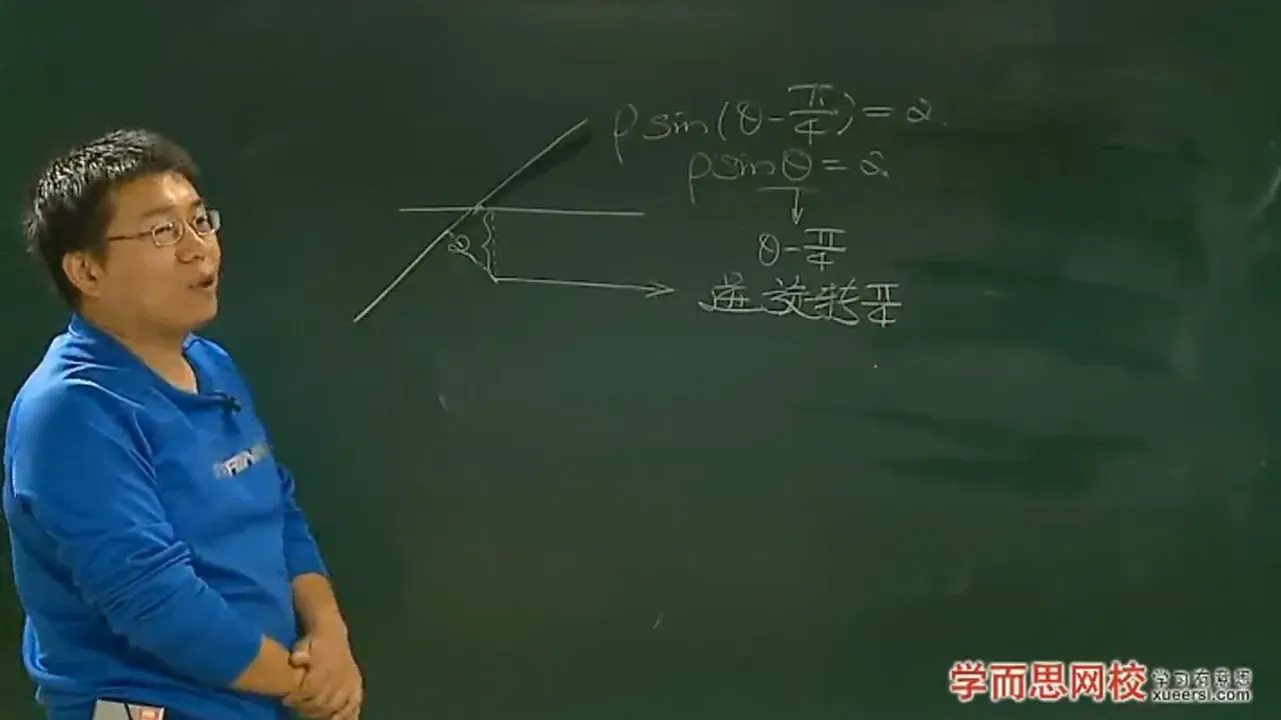 ρ sin(θ-π/4)=2.
ρ sinθ=2
θ-π/4
2
逆旋转π/4
学而思网校 学习有意思
xueersi.com